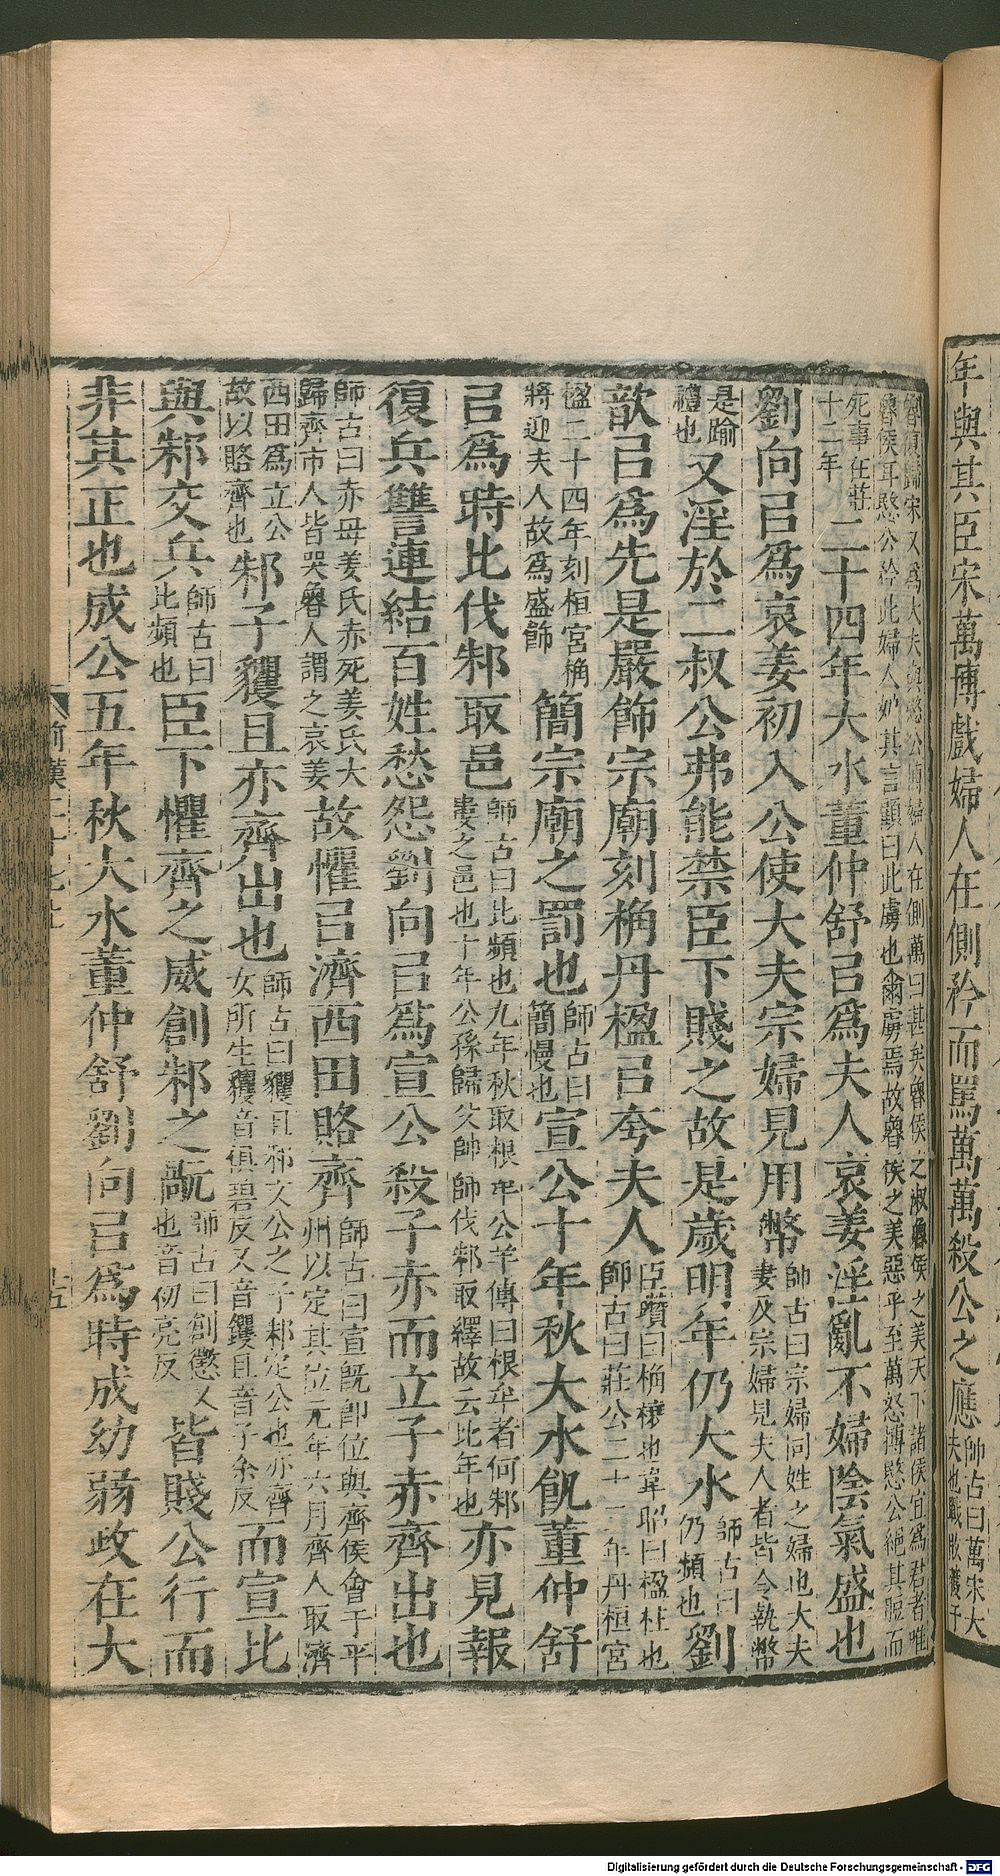 年與其臣宋萬博戲婦人在側矜而罵萬萬殺公之應師古曰萬宋大
夫也戰敗獲于
魯復歸宋又爲大夫與愍公博婦人在側萬曰甚矣魯侯之淑魯侯之美天下諸侯宜爲君者唯
魯侯耳愍公矜此婦人妒其言顧曰此虜也爾虜焉故魯侯之美惡乎至萬怒搏愍公絕其脰而
死事在莊
十二年
二十四年大水董仲舒㠯爲夫人哀姜淫亂不婦陰氣盛也
劉向㠯爲哀姜初入公使大夫宗婦見用幣師古曰宗婦同姓之婦也大夫
妻及宗婦見夫人者皆令執幣
是踰
禮也
又淫於二叔公弗能禁臣下賤之故是歲明年仍大水師古曰
仍頻也
劉
歆㠯爲先是嚴飾宗廟刻桷丹楹㠯夸夫人臣瓚曰桷榱也韋昭曰楹柱也
師古曰莊公二十三年丹桓宮
楹二十四年刻桓宮桷
將迎夫人故爲盛飾
簡宗廟之罰也師古曰
簡慢也
宣公十年秋大水飢董仲舒
㠯爲時比伐邾取邑師古曰比頻也九年秋取根牟公羊傳曰根牟者何邾
婁之邑也十年公孫歸父帥師伐邾取繹故云比年也
亦見報
復兵讐連結百姓愁怨劉向㠯爲宣公殺子赤而立子赤齊出也
師古曰赤母姜氏赤死姜氏大
歸齊市人皆哭魯人謂之哀姜
故懼㠯濟西田賂齊師古曰宣既即位與齊侯會于平
州以定其位元年六月齊人取濟
西田爲立公
故以賂齊也
邾子貜且亦齊出也師古曰貜且邾文公之子邾定公也亦齊
女所生貜音俱碧反又音钁且音子余反
而宣比
與邾交兵師古曰
比頻也
臣下懼齊之威創邾之䣭師古曰創懲乂
也音初亮反
皆賤公行而
非其正也成公五年秋大水董仲舒劉向㠯爲時成幼弱政在大
前漢二十七上
十五
Digitalisierung gefördert durch die Deutsche Forschungsgemeinschaft - DFG